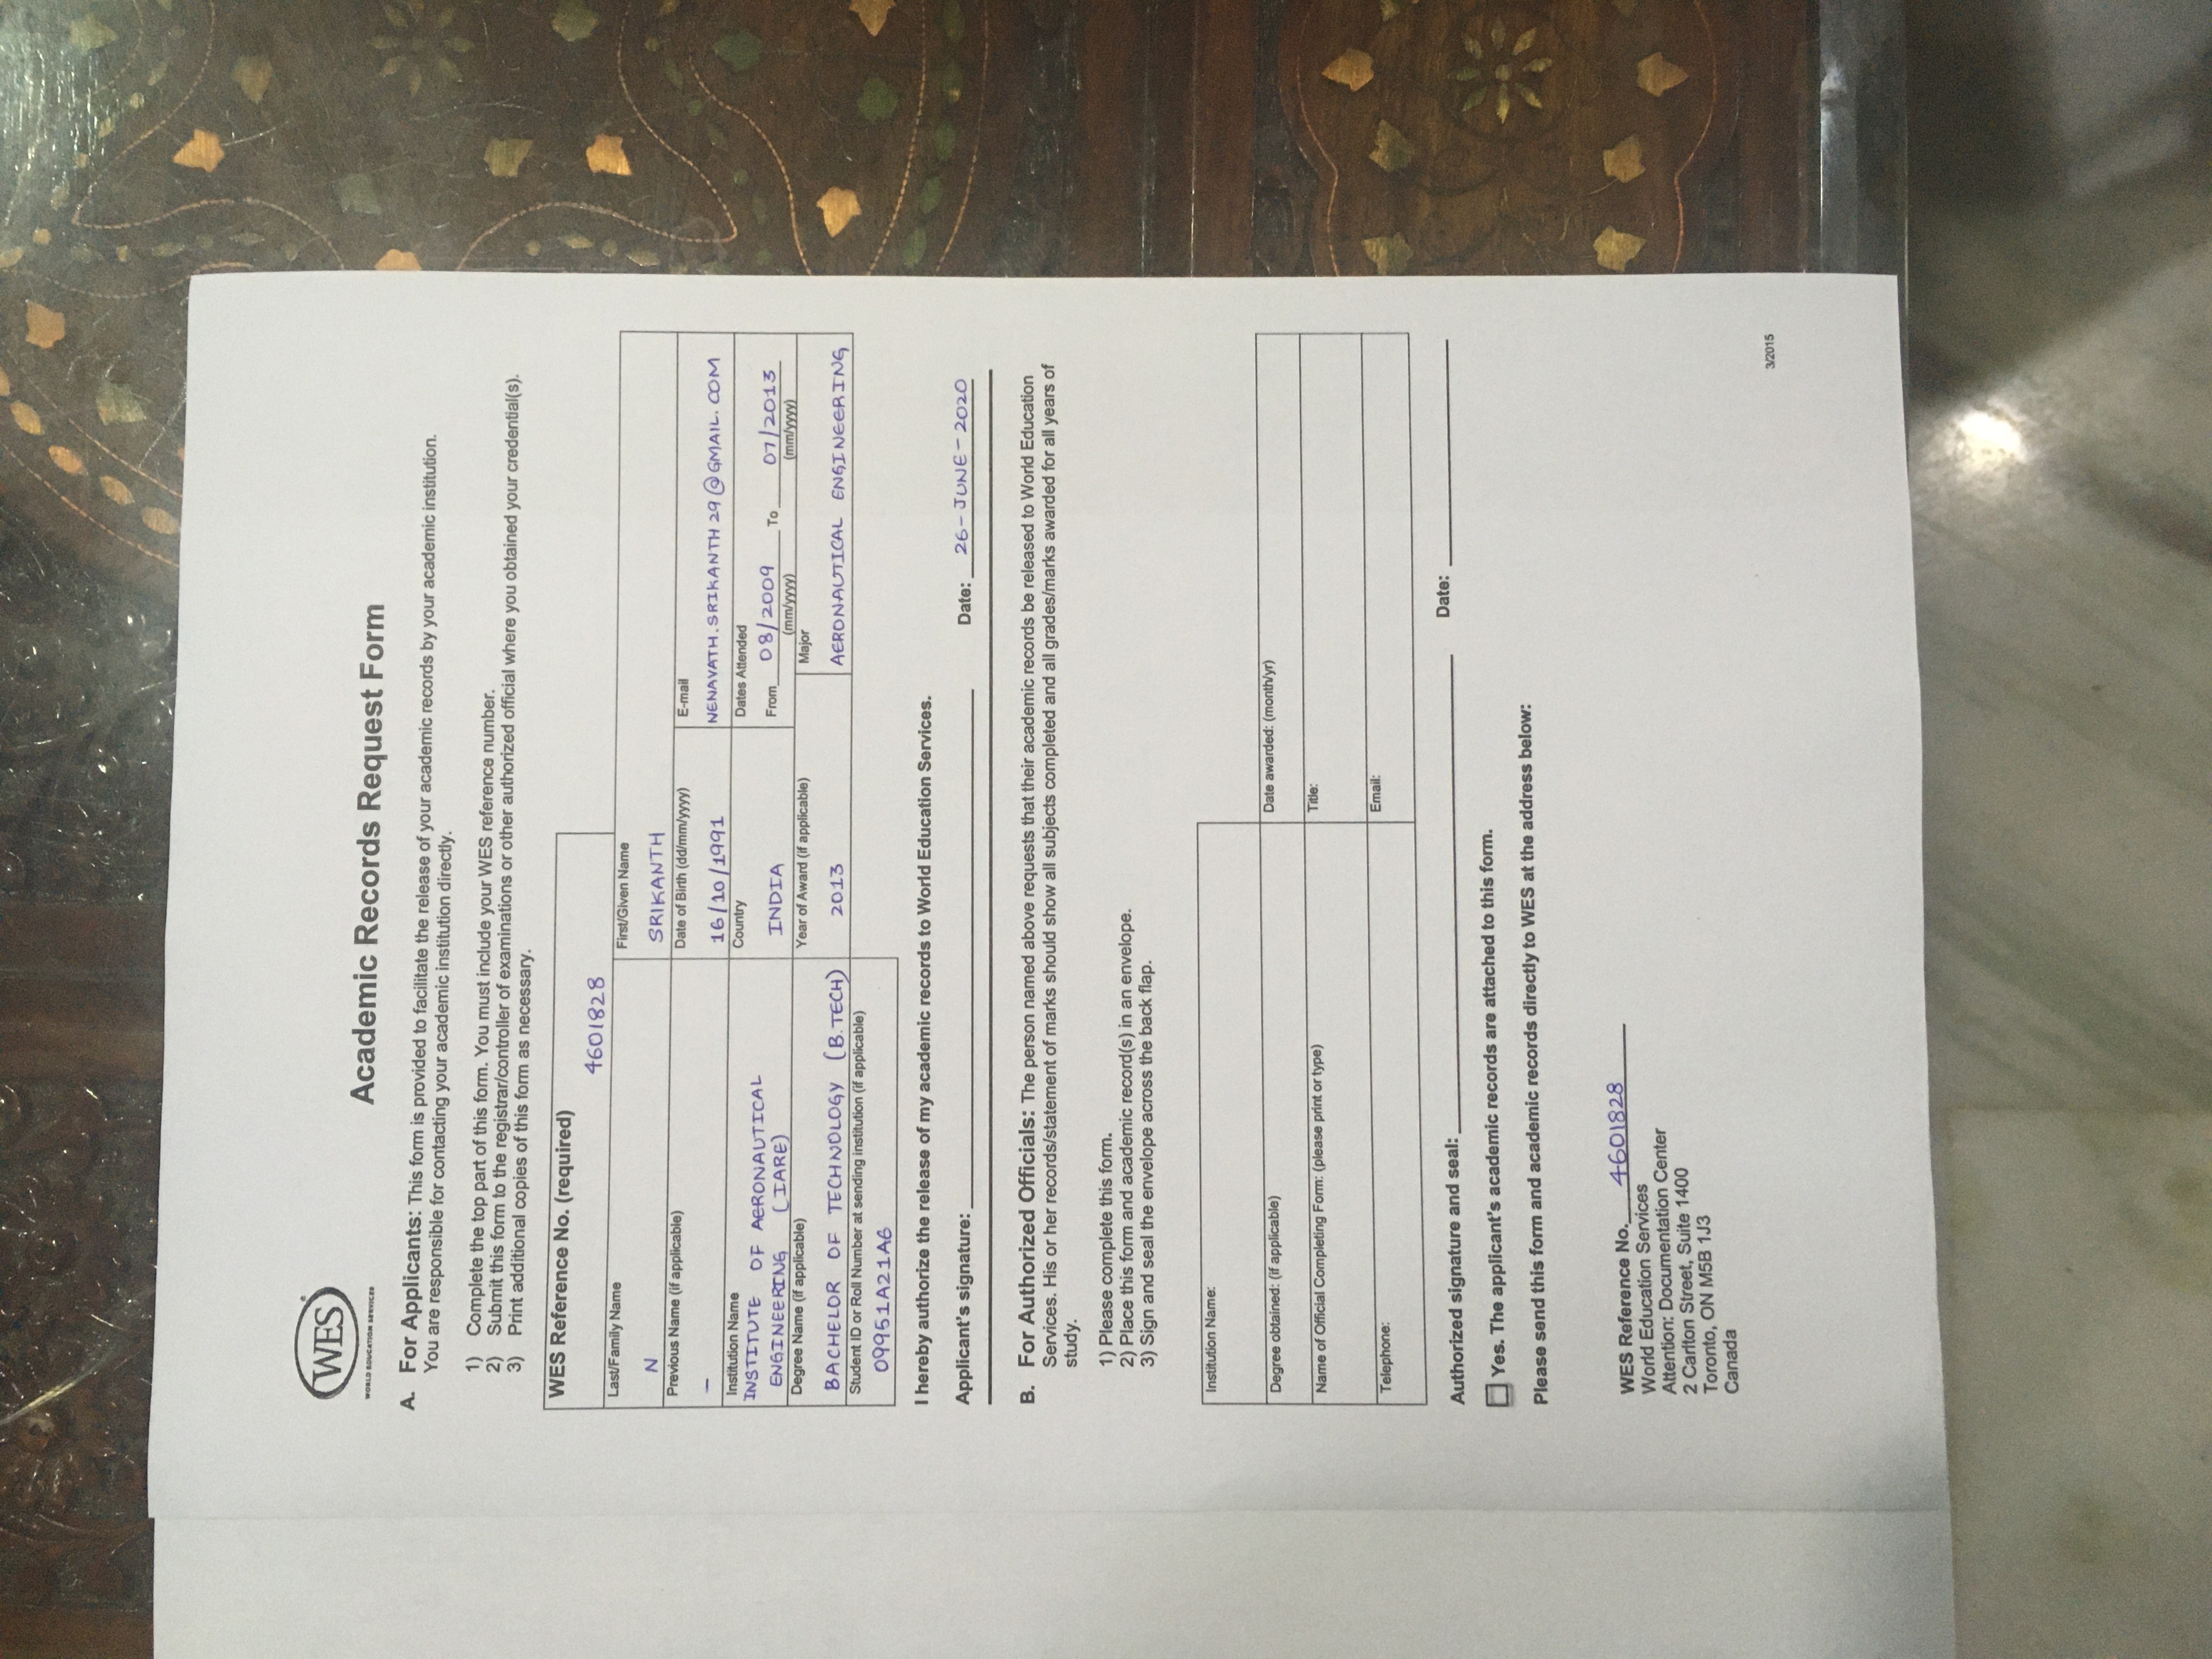 WES
WORLD EDUCATION SERVICES
Academic Records Request Form
A. For Applicants: This form is provided to facilitate the release of your academic records by your academic institution.
You are responsible for contacting your academic institution directly.
1) Complete the top part of this form. You must include your WES reference number.
2) Submit this form to the registrar/controller of examinations or other authorized official where you obtained your credential(s).
3) Print additional copies of this form as necessary.
WES Reference No. (required)
4601828
Last/Family Name First/Given Name
N SRIKANTH
Previous Name (if applicable) Date of Birth (dd/mm/yyyy) E-mail
– 16/10/1991 NENAVATH.SRIKANTH29@GMAIL.COM
Institution Name Country Dates Attended
INSTITUTE OF AERONAUTICAL
ENGINEERING (IARE) INDIA From 08/2009 To 07/2013
(mm/yyyy) (mm/yyyy)
Degree Name (if applicable) Year of Award (if applicable) Major
BACHELOR OF TECHNOLOGY (B.TECH) 2013 AERONAUTICAL ENGINEERING
Student ID or Roll Number at sending institution (if applicable)
09951A21A6
I hereby authorize the release of my academic records to World Education Services.
Applicant's signature: Date: 26-JUNE-2020
B. For Authorized Officials: The person named above requests that their academic records be released to World Education
Services. His or her records/statement of marks should show all subjects completed and all grades/marks awarded for all years of
study.
1) Please complete this form.
2) Place this form and academic record(s) in an envelope.
3) Sign and seal the envelope across the back flap.
Institution Name:
Degree obtained: (if applicable) Date awarded: (month/yr)
Name of Official Completing Form: (please print or type) Title:
Telephone: Email:
Authorized signature and seal: Date:
Yes. The applicant's academic records are attached to this form.
Please send this form and academic records directly to WES at the address below:
WES Reference No. 4601828
World Education Services
Attention: Documentation Center
2 Carlton Street, Suite 1400
Toronto, ON M5B 1J3
Canada
3/2015